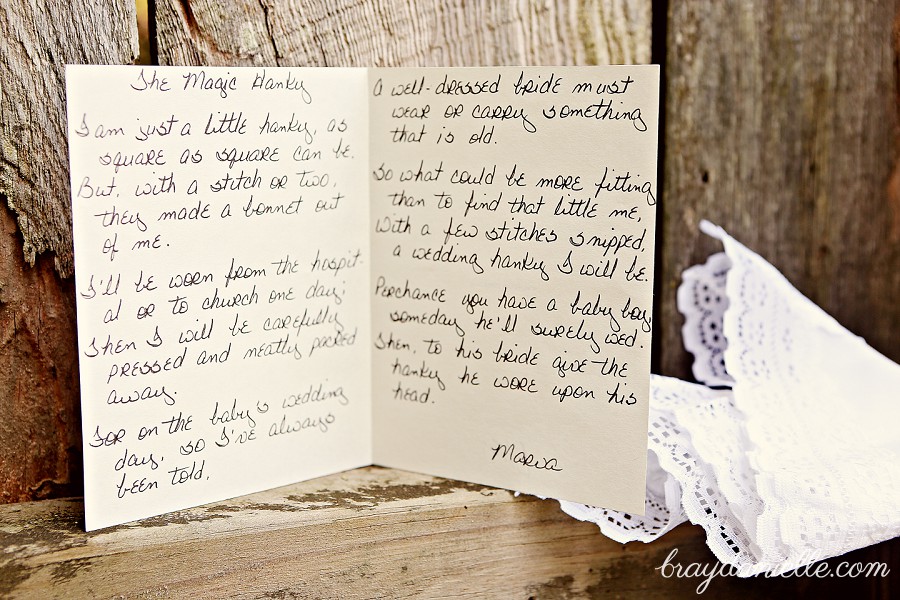 The Magic Hanky
I am just a little hanky, as
square as square can be.
But, with a stitch or two,
they made a bonnet out
of me.
I'll be worn from the hospit-
al or to church one day;
Then I will be carefully
pressed and neatly packed
away.
For on the baby's wedding
day, so I've always
been told,
A well-dressed bride must
wear or carry something
that is old.
So what could be more fitting
than to find that little me,
With a few stitches snipped,
a wedding hanky I will be.
Perchance you have a baby boy,
someday he'll surely wed.
Then, to his bride give the
hanky he wore upon his
head.
Marva
braydanielle.com